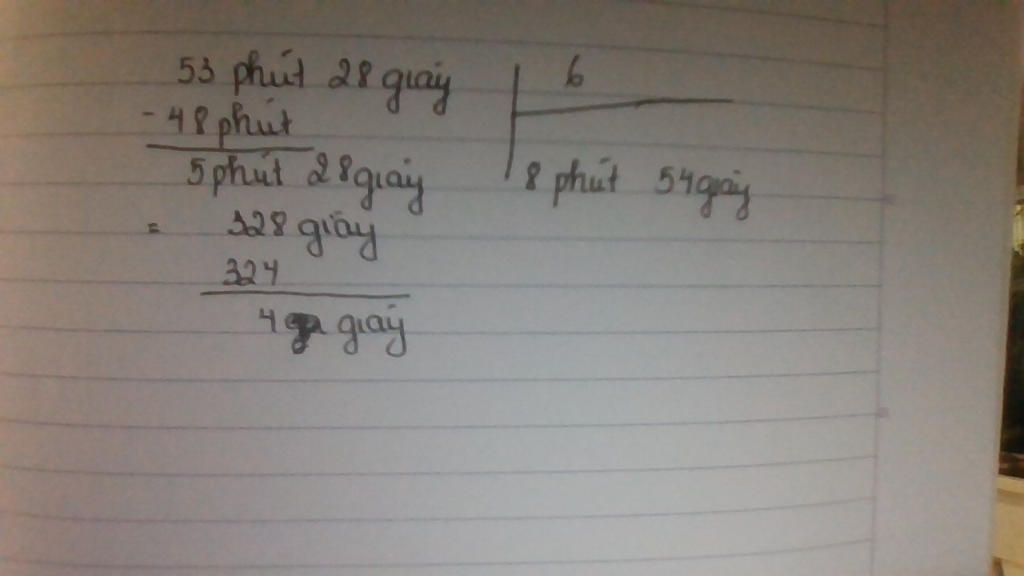 53 phút 28 giây 6
- 48 phút
5 phút 28 giây 8 phút 54 giây
= 328 giây
324
4 giây